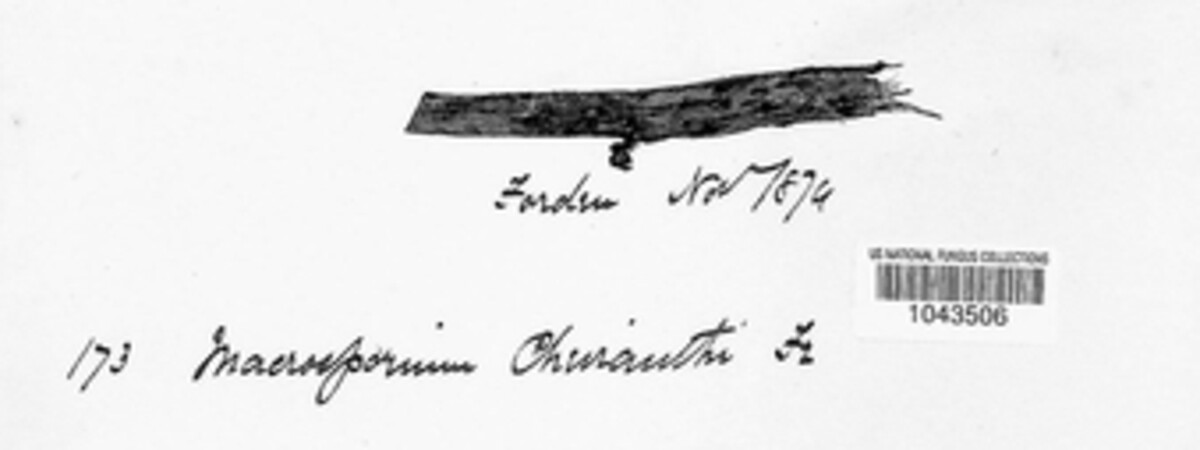 Forden Nov 1874
US NATIONAL FUNGUS COLLECTIONS
1043506
173 Macrosporium Cheiranthi Fr